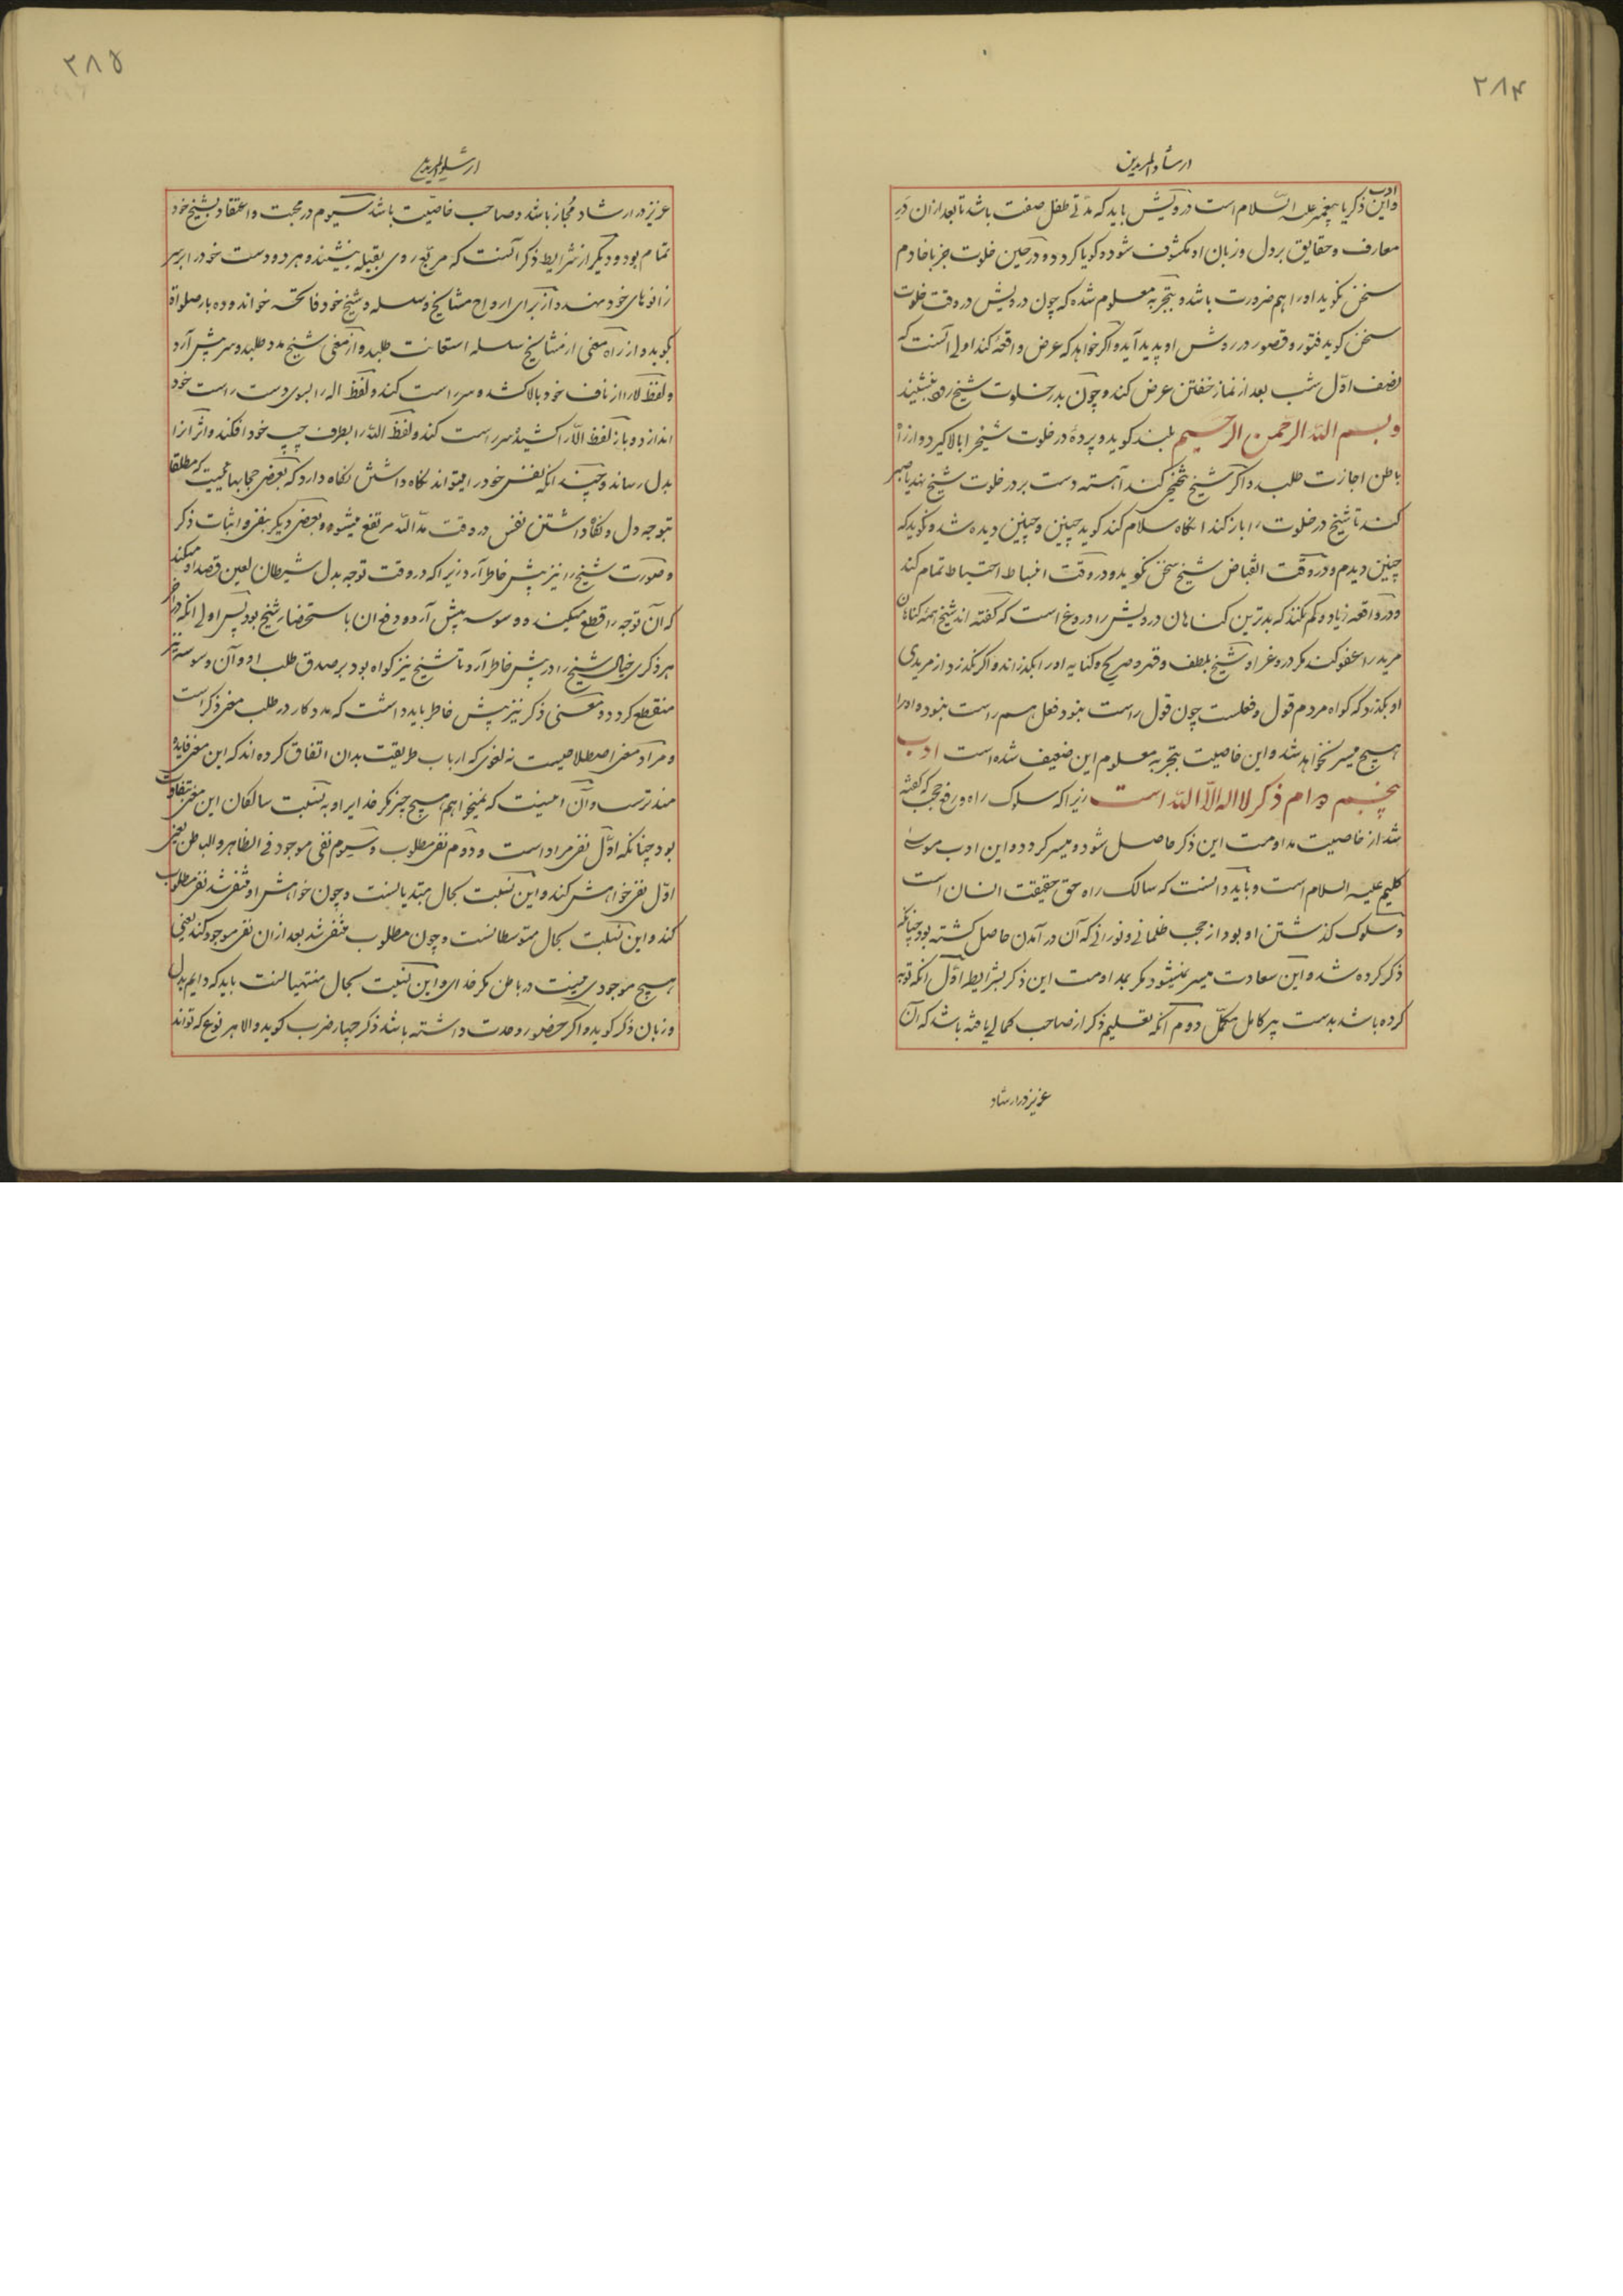 ۲۸۴
ارشاد المریدین
ادب
واین ذکریا پیغمبر علیه السّلام است درویش باید که مدّتی طفل صفت باشد تا بعد ازان دَرِ
معارف و حقایق بر دل و زبان او مکشوف شود و کویا کردد و در حین خلوت جز با خادم
سخن نکوید او را هم ضرورت باشد و بتجربه معلوم شده که چون درویش در وقت خلوت
سخن کوید فتور و قصور در روش او پدید آید و اکر خواهد که عرض واقعهٔ کند اولی آنست که
نصف اوّل شب بعد از نماز خفتن عرض کند و چون بدر خلوت شیخ رود بنشیند
و بسم اللّه الرّحمن الرّحیم بلند کوید و پردهٔ در خلوت شیخ را بالا کیرد و از راه
باطن اجازت طلبد و اکر شیخ تنحنح کند آهسته دست بر در خلوت شیخ نهد یا صبر
کند تا شیخ در خلوت را باز کند انکاه سلام کند کوید چنین و چنین دیده شد و نکوید که
چنین دیدم و در وقت انقباض شیخ سخن نکوید و در وقت انبساط احتیاط تمام کند
و در واقعه زیاد و کم نکند که بدترین کناهان درویش را دروغ است که کفته اند شیخ همه کناهان
مرید را عفو کند مکر دروغ را و شیخ بلطف و قهر و صریح و کنایه او را بکذراند و اکر نکذرد از مریدی
او بکذرد که کواه مردم قول و فعلست چون قول راست نبود فعل هم راست نبود و او را
هیچ میسر نخواهد شد و این خاصیت بتجربه معلوم این ضعیف شده است ادب
پنجم دوام ذکر لا اله الاّ اللّه است زیرا که سلوک راه و رفع حجب که کفته
شد از خاصیت مداومت این ذکر حاصل شود و میسر کردد و این ادب موسی
کلیم علیه السلام است و باید دانست که سالک راه حق حقیقت انسان است
و سلوک کذشتن او بود از حجب ظلمانی و نورانی که آن در آمدن حاصل کشته بود چنانکه
ذکر کرده شد و این سعادت میسر نمیشود مکر بمداومت این ذکر بشرایط اوّل آنکه توبه
کرده باشد بدست پیر کامل مکمّل دوم آنکه تعلیم ذکر از صاحب کمالی یافته باشد که آن
عزیز در ارشاد
۲۸۵
ارشاد المریدین
عزیز در ارشاد مُجاز باشد و صاحب خاصّیت باشد سیوم در محبت و اعتقاد بشیخ خود
تمام بود و دیکر از شرایط ذکر آنست که مربّع روی بقبله بنشیند و هر دو دست خود را بر سر
زانوهای خود نهد و از برای ارواح مشایخ و سلسله و شیخ خود فاتحه خواند و ده بار صلواة
بکوید و از راه معنی از مشایخ سلسله استعانت طلبد و از معنی شیخ مدد طلبد و سر پیش آرد
و لفظ لا را از ناف خود بالا کشد و سر راست کند و لفظ اله را بسوی دست راست خود
اندازد و باز لفظ الاّ را کشیده سر راست کند و لفظ اللّه را بطرف چپ خود افکند و اثر آنرا
بدل رساند و چندانکه نفس خود را میتواند نکاه داشتن نکاه دارد که بعضی حجابها میست که مطلقا
بتوجه دل و نکاه داشتن نفس در وقت مدّ اللّه مرتفع میشود و بعضی دیکر بنفی و اثبات ذکر
و صورت شیخ را نیز پیش خاطر آرد زیرا که در وقت توجه بدل شیطان لعین قصد او میکند
که آن توجه را قطع میکند و وسوسه پیش آرد و دفع آن باستحضار شیخ بود پس اولی آنکه در آخر
هر ذکری خیال شیخ را در پیش خاطر آرد تا شیخ نیز کواه بود بر صدق طلب او و آن وسوسه نیز
منقطع کردد و معنی ذکر نیز پیش خاطر باید داشت که مدد کار در طلب معنی ذکر است
و مراد معنی اصطلاحیست نه لغوی که ارباب طریقت بدان اتفاق کرده اند که این معنی فایده
مندترست و آن اینست که نمیخواهم هیچ چیز مکر خدایرا و به نسبت سالکان این معنی متفاوت
بود چنانکه اوّل نفی مراد است و دوم نفی مطلوب و سیوم نفی موجود فی الظاهر و الباطن یعنی
اوّل نفی خواهش کند و این نسبت بحال مبتدیانست و چون خواهش او منفی شد نفی مطلوب
کند و این نسبت بحال متوسطانست و چون مطلوب منفی شد بعد ازان نفی موجود کند یعنی
هیچ موجودی نیست در باطن مکر خدای و این نسبت بحال منتهیانست باید که دایم بدل
و زبان ذکر کوید و اکر حضور وحدت داشته باشد ذکر چهار ضرب کوید و الا هر نوع که تواند